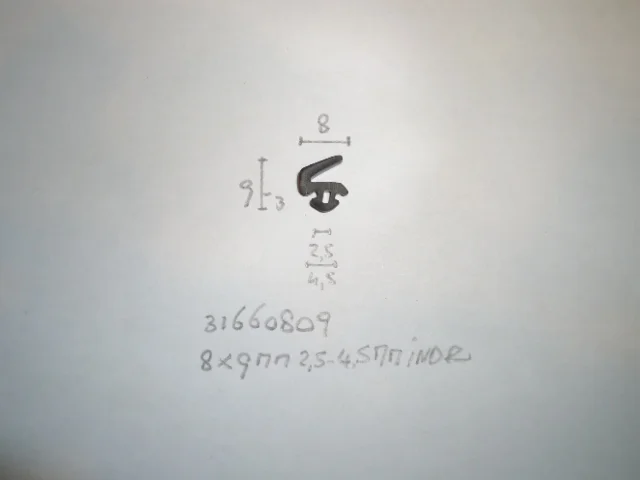 8
9
3
2,5
4,5
31660809
8x9mm 2,5-4,5mm iNDR